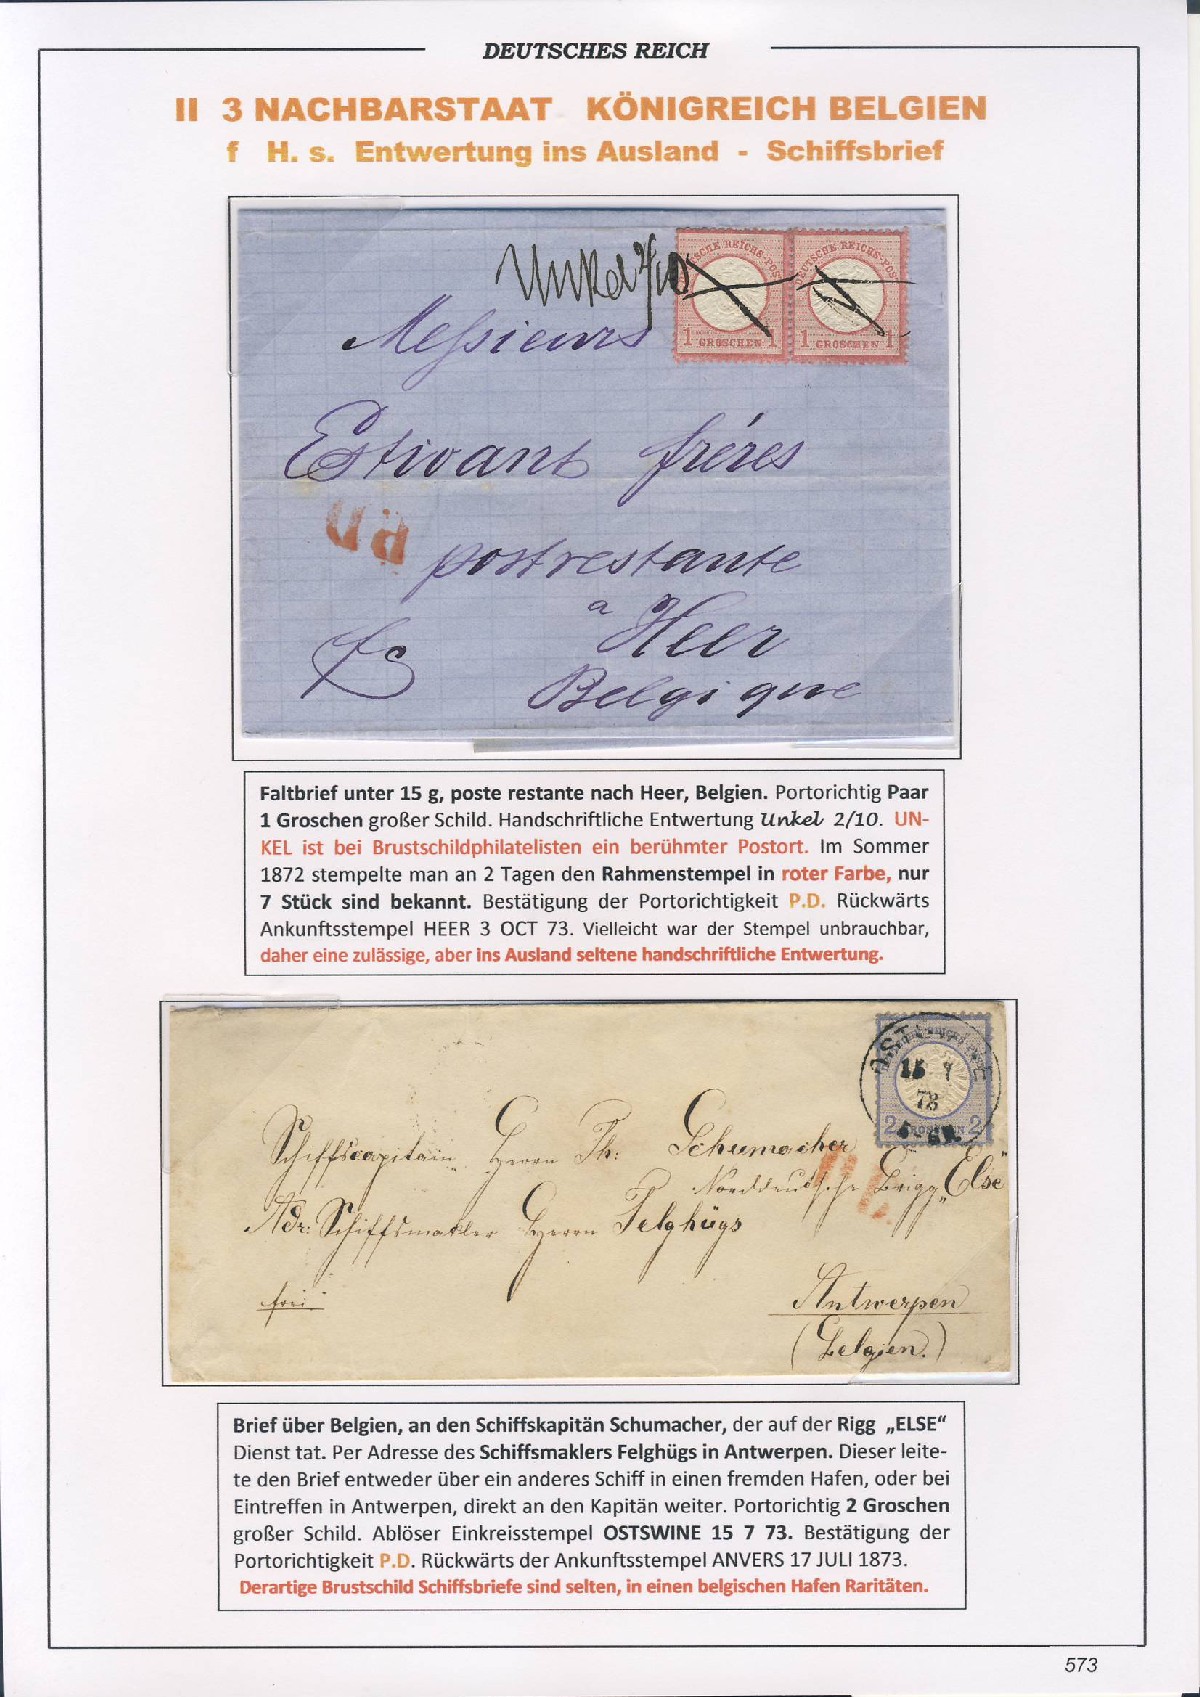 DEUTSCHES REICH
II 3 NACHBARSTAAT KÖNIGREICH BELGIEN
f H. s. Entwertung ins Ausland - Schiffsbrief
Unkel 2/10
DEUTSCHE REICHS-POST
1 GROSCHEN 1
DEUTSCHE REICHS-POST
1 GROSCHEN 1
Messieurs
Estivant fréres
P.D.
postrestante
a Heer
fs
Belgique
Faltbrief unter 15 g, poste restante nach Heer, Belgien. Portorichtig Paar
1 Groschen großer Schild. Handschriftliche Entwertung Unkel 2/10. UN-
KEL ist bei Brustschildphilatelisten ein berühmter Postort. Im Sommer
1872 stempelte man an 2 Tagen den Rahmenstempel in roter Farbe, nur
7 Stück sind bekannt. Bestätigung der Portorichtigkeit P.D. Rückwärts
Ankunftsstempel HEER 3 OCT 73. Vielleicht war der Stempel unbrauchbar,
daher eine zulässige, aber ins Ausland seltene handschriftliche Entwertung.
15 7
73
2 GROSCHEN 2
Schiffscapitain Herrn Th: Schumacher
Norddeutsche Brigg "Else"
Adr: Schiffsmakler Herrn Felghügs
frei
Antwerpen
(Belgien.)
Brief über Belgien, an den Schiffskapitän Schumacher, der auf der Rigg „ELSE“
Dienst tat. Per Adresse des Schiffsmaklers Felghügs in Antwerpen. Dieser leite-
te den Brief entweder über ein anderes Schiff in einen fremden Hafen, oder bei
Eintreffen in Antwerpen, direkt an den Kapitän weiter. Portorichtig 2 Groschen
großer Schild. Ablöser Einkreisstempel OSTSWINE 15 7 73. Bestätigung der
Portorichtigkeit P.D. Rückwärts der Ankunftsstempel ANVERS 17 JULI 1873.
Derartige Brustschild Schiffsbriefe sind selten, in einen belgischen Hafen Raritäten.
573